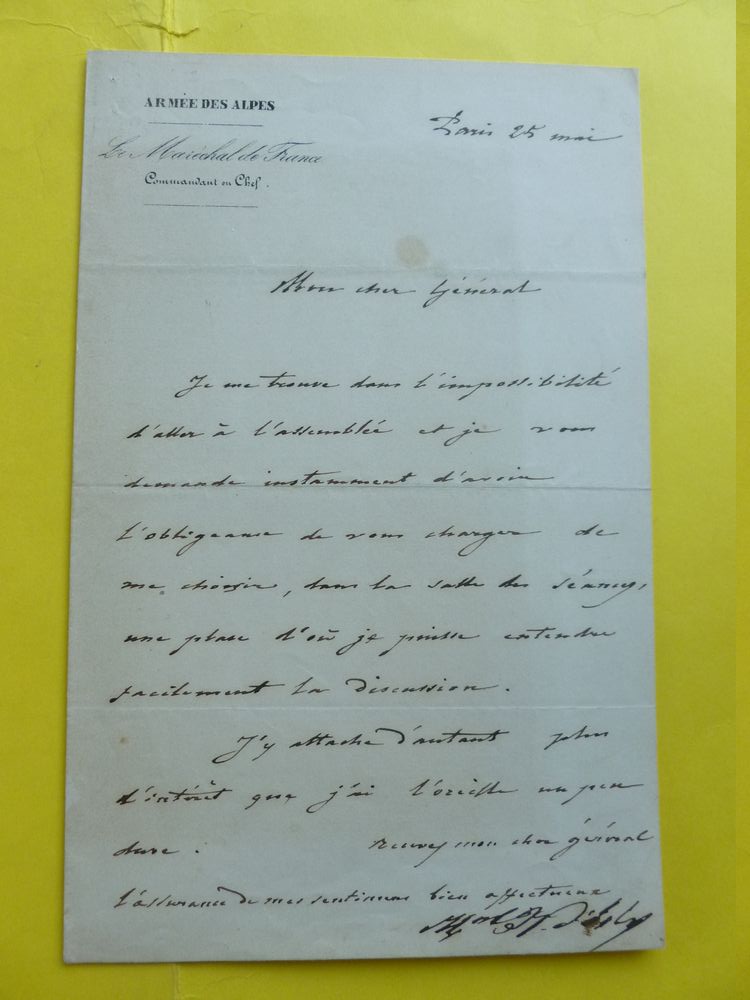 ARMÉE DES ALPES
Le Maréchal de France
Commandant en Chef.
Paris 25 mai
Mon cher Général
Je me trouve dans l'impossibilité
d'aller à l'assemblée et je vous
demande instamment d'avoir
l'obligeance de vous charger de
me choisir, dans la salle des séances,
une place d'où je puisse entendre
facilement la discussion.
J'y attache d'autant plus
d'intérêt que j'ai l'oreille un peu
dure. recevez mon cher général
l'assurance de mes sentimens bien affectueux